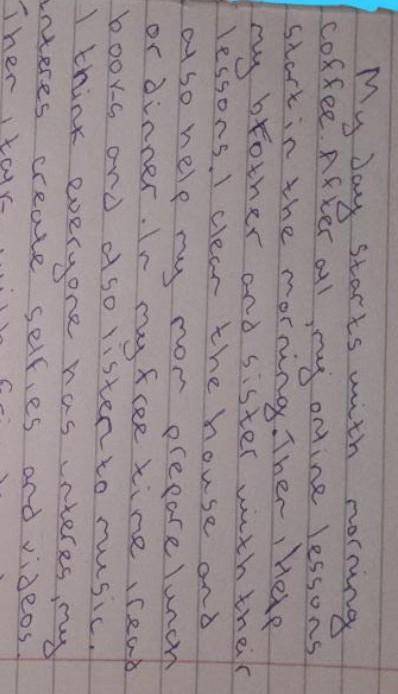 My day starts with morning
coffee. After all, my online lessons
start in the morning. Then i help
my brother and sister with their
lessons. I clean the house and
also help my mom prepare lunch
or dinner. In my free time i read
books and also listen to music.
I think everyone has interes, my
interes create selfies and videos.
Then i talk with